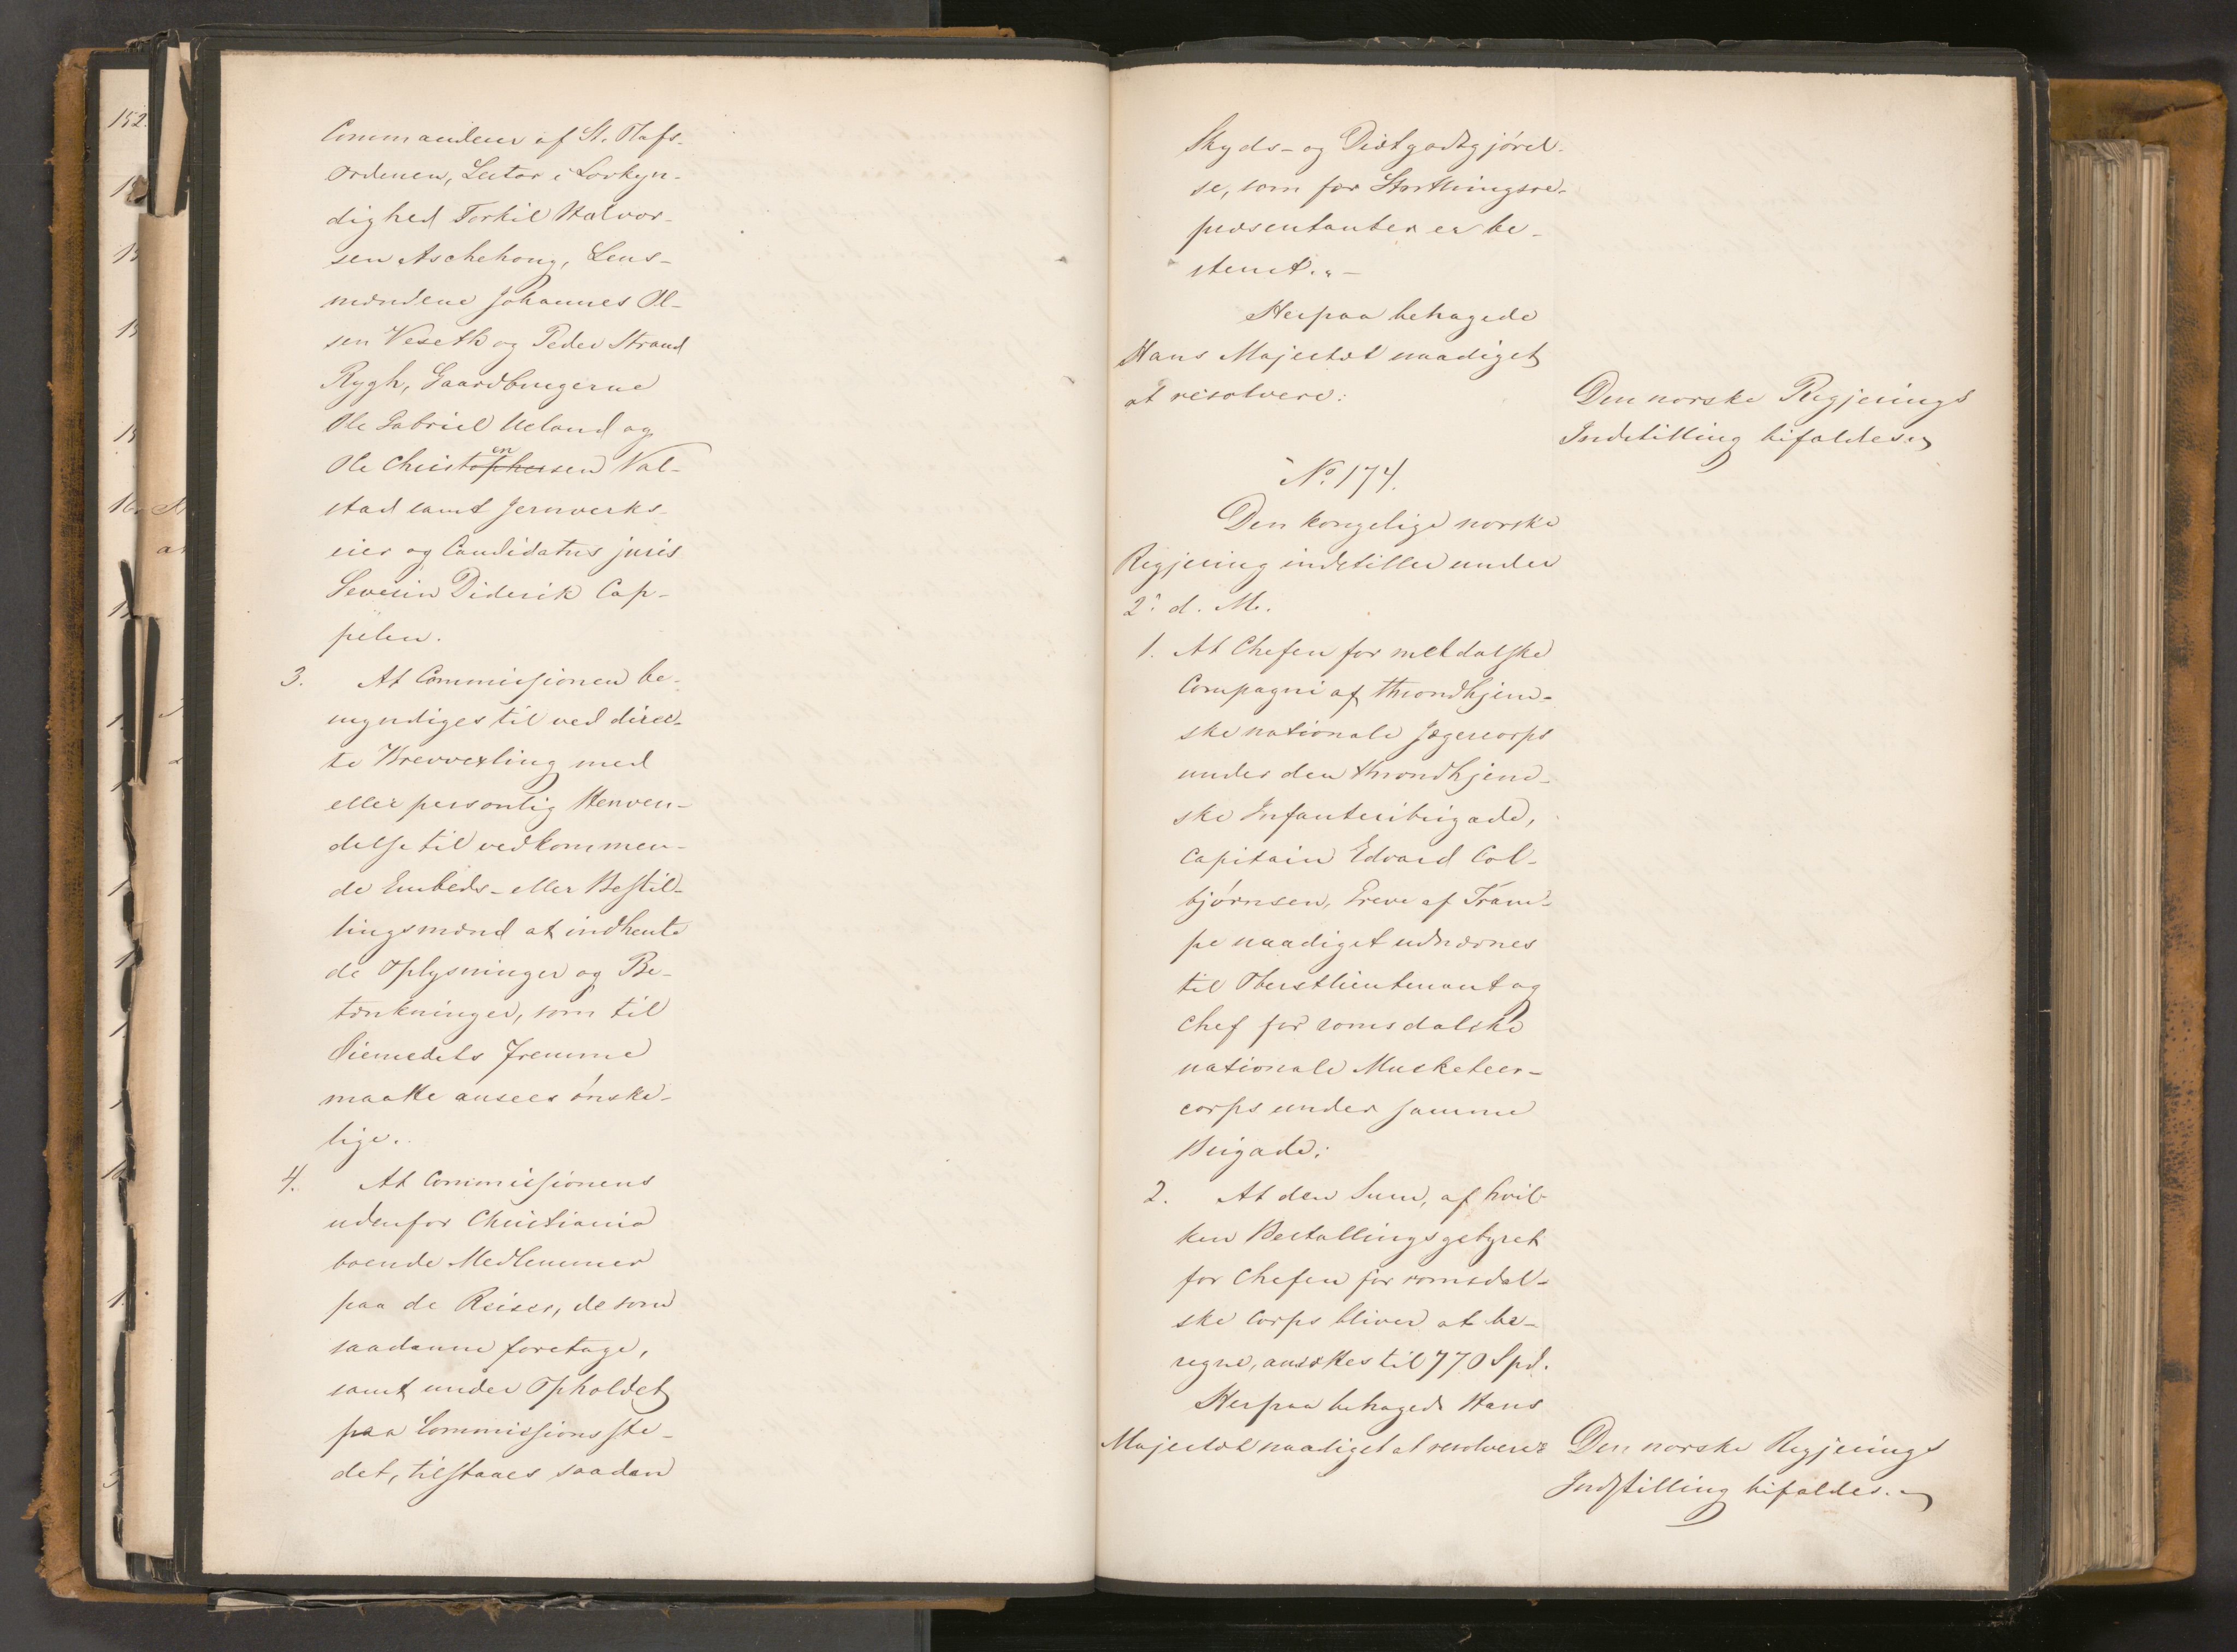 Commandeur af St. Olafs-
Ordenen, Lector i Lovkyn-
dighed Torkil Halvor-
sen Aschehoug, Lens-
mændene Johannes Ol-
sen Veseth og Peder Strand
Rygh, Gaardbrugerne
Ole Gabriel Ueland og
en
Ole Christophersen Val-
stad samt Jernverks-
eier og Candidatus juris
Severin Diderik Cap-
pelen.
3. At Commissionen be-
myndiges til ved direc-
te Brevvexling med
eller personlig Henven-
delse til vedkommen-
de Embeds- eller Bestil-
lingsmænd at indhente
de Oplysninger og Be-
tænkninger, som til
Øiemedets Fremme
maatte ansees ønske-
lige.
4. At Commissionens
udenfor Christiania
boende Medlemmer
paa de Reiser, de som
saadanne foretage,
samt under Opholdet
paa Commissionsste-
det, tilstaaes saadan
Skyds- og Diætgodtgjørel-
se, som for Storthingsre-
præsentanter er be-
stemt."-
Herpaa behagede
Hans Majestæt naadigst
at resolvere:
Den norske Regjerings
Indstilling bifaldes.
No. 174.
Den kongelige norske
Regjering indstiller under
2. d. M.
1. At Chefen for meldalske
Compagni af throndhjem-
ske nationale Jægercorps
under den throndhjem-
ske Infanteribrigade,
Capitain Edvard Col-
bjørnsen, Greve af Tram-
pe naadigst udnævnes
til Oberstlieutenant og
Chef for romsdalske
nationale Musketeer-
corps under samme
Brigade;
2. At den Sum, af hvil-
ken Bestallingsgebyret
for Chefen for romsdal-
ske Corps bliver at be-
regne, ansættes til 770 Spd.
Herpaa behagede Hans
Majestæt naadigst at resolvere:
Den norske Regjerings
Indstilling bifaldes.